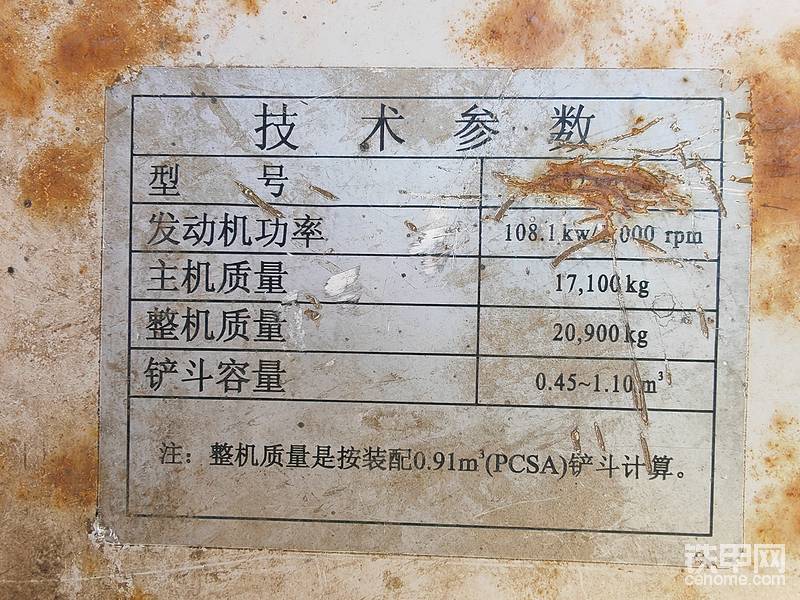 技术参数
型号
发动机功率 108.1kw/ 000 rpm
主机质量 17,100kg
整机质量 20,900kg
铲斗容量 0.45~1.10m³
注：整机质量是按装配0.91m³(PCSA)铲斗计算。
铁甲网
cehome.com